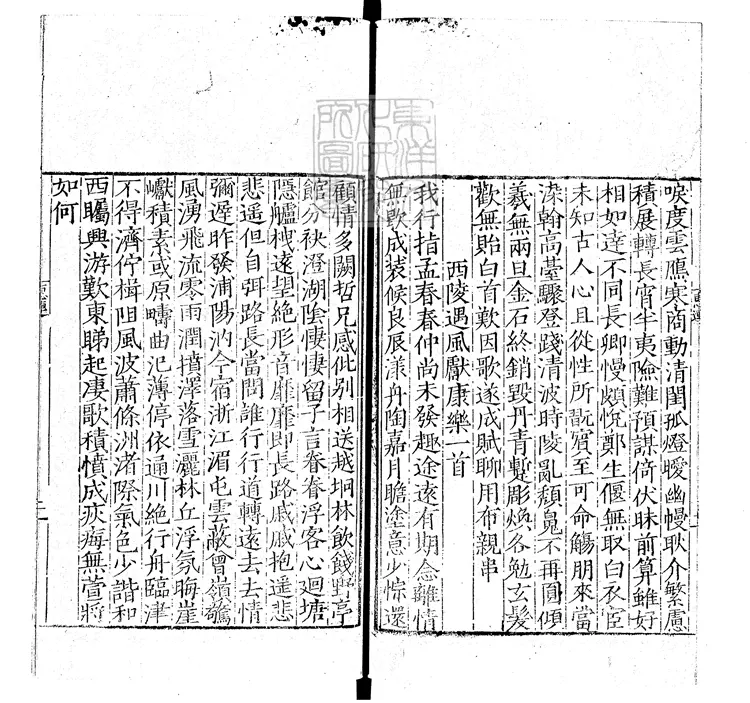 唳度雲鴈寒商動清閨孤燈曖幽幔耿介繁慮
積展轉長宵半夷險難預謀倚伏昧前算雖好
相如達不同長卿慢頗悅鄭生偃無取白衣宦
未知古人心且從性所翫賓至可命觴朋來當
染翰高臺驟登踐清波時陵亂頹䰟不再圓傾
羲無兩旦金石終銷毀丹青蹔彫煥各勉玄髮
歡無貽白首歎因歌遂成賦聊用布親串
西陵遇風獻康樂一首
我行指孟春春仲尚未發趣途遠有期念離情
無歇成装候良辰漾舟陶嘉月瞻塗意少悰還
顧情多闕哲兄感仳別相送越坰林飲餞野亭
館分袂澄湖陰悽悽留子言眷眷浮客心迴塘
隱艫栧遠望絕形音靡靡即長路戚戚抱遥悲
悲遥但自弭路長當問誰行行道轉遠去去情
彌遲昨發浦陽汭今宿浙江湄屯雲蔽曾嶺驚
風湧飛流零雨潤墳澤落雪灑林丘浮氛晦崖
巘積素或原疇曲汜薄停依通川絕行舟臨津
不得濟佇楫阻風波蕭條洲渚際氣色少諧和
西矚興游歎東睇起凄歌積憤成疢痗無萱將
如何